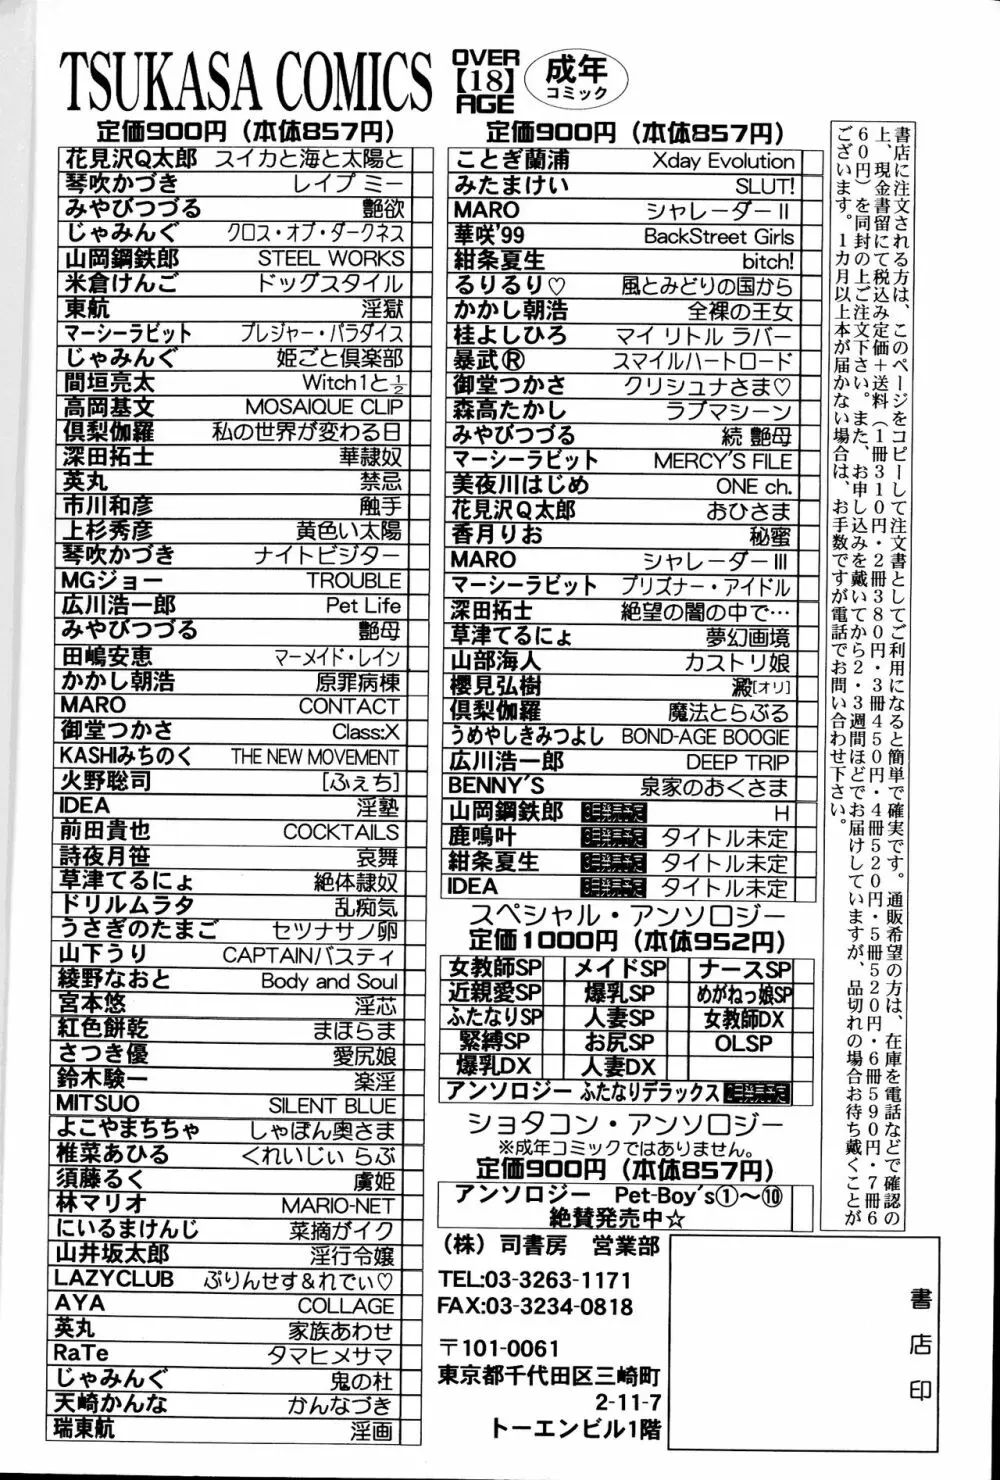 TSUKASA COMICS
OVER
【18】
AGE
成年
コミック
定価900円（本体857円）
花見沢Q太郎 スイカと海と太陽と
琴吹かづき レイプ ミー
みやびつづる 艶欲
じゃみんぐ クロス・オブ・ダークネス
山岡鋼鉄郎 STEEL WORKS
米倉けんご ドッグスタイル
東航 淫獄
マーシーラビット プレジャー・パラダイス
じゃみんぐ 姫ごと倶楽部
間垣亮太 Witch1と½
高岡基文 MOSAIQUE CLIP
倶梨伽羅 私の世界が変わる日
深田拓士 華隷奴
英丸 禁忌
市川和彦 触手
上杉秀彦 黄色い太陽
琴吹かづき ナイトビジター
MGジョー TROUBLE
広川浩一郎 Pet Life
みやびつづる 艶母
田嶋安恵 マーメイド・レイン
かかし朝浩 原罪病棟
MARO CONTACT
御堂つかさ Class:X
KASHIみちのく THE NEW MOVEMENT
火野聡司 [ふぇち]
IDEA 淫塾
前田貴也 COCKTAILS
詩夜月笹 哀舞
草津てるにょ 絶体隷奴
ドリルムラタ 乱痴気
うさぎのたまご セツナサノ卵
山下うり CAPTAINバスティ
綾野なおと Body and Soul
宮本悠 淫芯
紅色餅乾 まほらま
さつき優 愛尻娘
鈴木験一 楽淫
MITSUO SILENT BLUE
よこやまちちゃ しゃぼん奥さま
椎菜あひる くれいじぃ らぶ
須藤るく 虜姫
林マリオ MARIO-NET
にいるまけんじ 菜摘がイク
山井坂太郎 淫行令嬢
LAZYCLUB ぷりんせす＆れでぃ♡
AYA COLLAGE
英丸 家族あわせ
RaTe タマヒメサマ
じゃみんぐ 鬼の杜
天崎かんな かんなづき
瑞東航 淫画
定価900円（本体857円）
ことぎ蘭浦 Xday Evolution
みたまけい SLUT!
MARO シャレーダーⅡ
華咲'99 BackStreet Girls
紺条夏生 bitch!
るりるり♡ 風とみどりの国から
かかし朝浩 全裸の王女
桂よしひろ マイ リトル ラバー
暴武Ⓡ スマイルハートロード
御堂つかさ クリシュナさま♡
森高たかし ラブマシーン
みやびつづる 続 艶母
マーシーラビット MERCY'S FILE
美夜川はじめ ONE ch.
花見沢Q太郎 おひさま
香月りお 秘蜜
MARO シャレーダーⅢ
マーシーラビット プリズナー・アイドル
深田拓士 絶望の闇の中で…
草津てるにょ 夢幻画境
山部海人 カストリ娘
櫻見弘樹 澱[オリ]
倶梨伽羅 魔法とらぶる
うめやしきみつよし BOND-AGE BOOGIE
広川浩一郎 DEEP TRIP
BENNY'S 泉家のおくさま
山岡鋼鉄郎 H
鹿鳴叶 タイトル未定
紺条夏生 タイトル未定
IDEA タイトル未定
スペシャル・アンソロジー
定価1000円（本体952円）
女教師SP メイドSP ナースSP
近親愛SP 爆乳SP めがねっ娘SP
ふたなりSP 人妻SP 女教師DX
緊縛SP お尻SP OLSP
爆乳DX 人妻DX
アンソロジー ふたなりデラックス
ショタコン・アンソロジー
※成年コミックではありません。
定価900円（本体857円）
アンソロジー Pet-Boy's①〜⑩
絶賛発売中☆
（株）司書房 営業部
TEL:03-3263-1171
FAX:03-3234-0818
〒101-0061
東京都千代田区三崎町
2-11-7
トーエンビル1階
書店に注文される方は、このページをコピーして注文書としてご利用になると簡単で確実です。通販希望の方は、在庫を電話などで確認の
上、現金書留にて税込み定価＋送料（1冊310円・2冊380円・3冊450円・4冊520円・5冊520円・6冊590円・7冊6
60円）を同封の上ご注文下さい。また、お申し込みを戴いてから2・3週間ほどでお届けしていますが、品切れの場合お待ち戴くことが
ございます。1カ月以上本が届かない場合は、お手数ですが電話でお問い合わせ下さい。
書店印